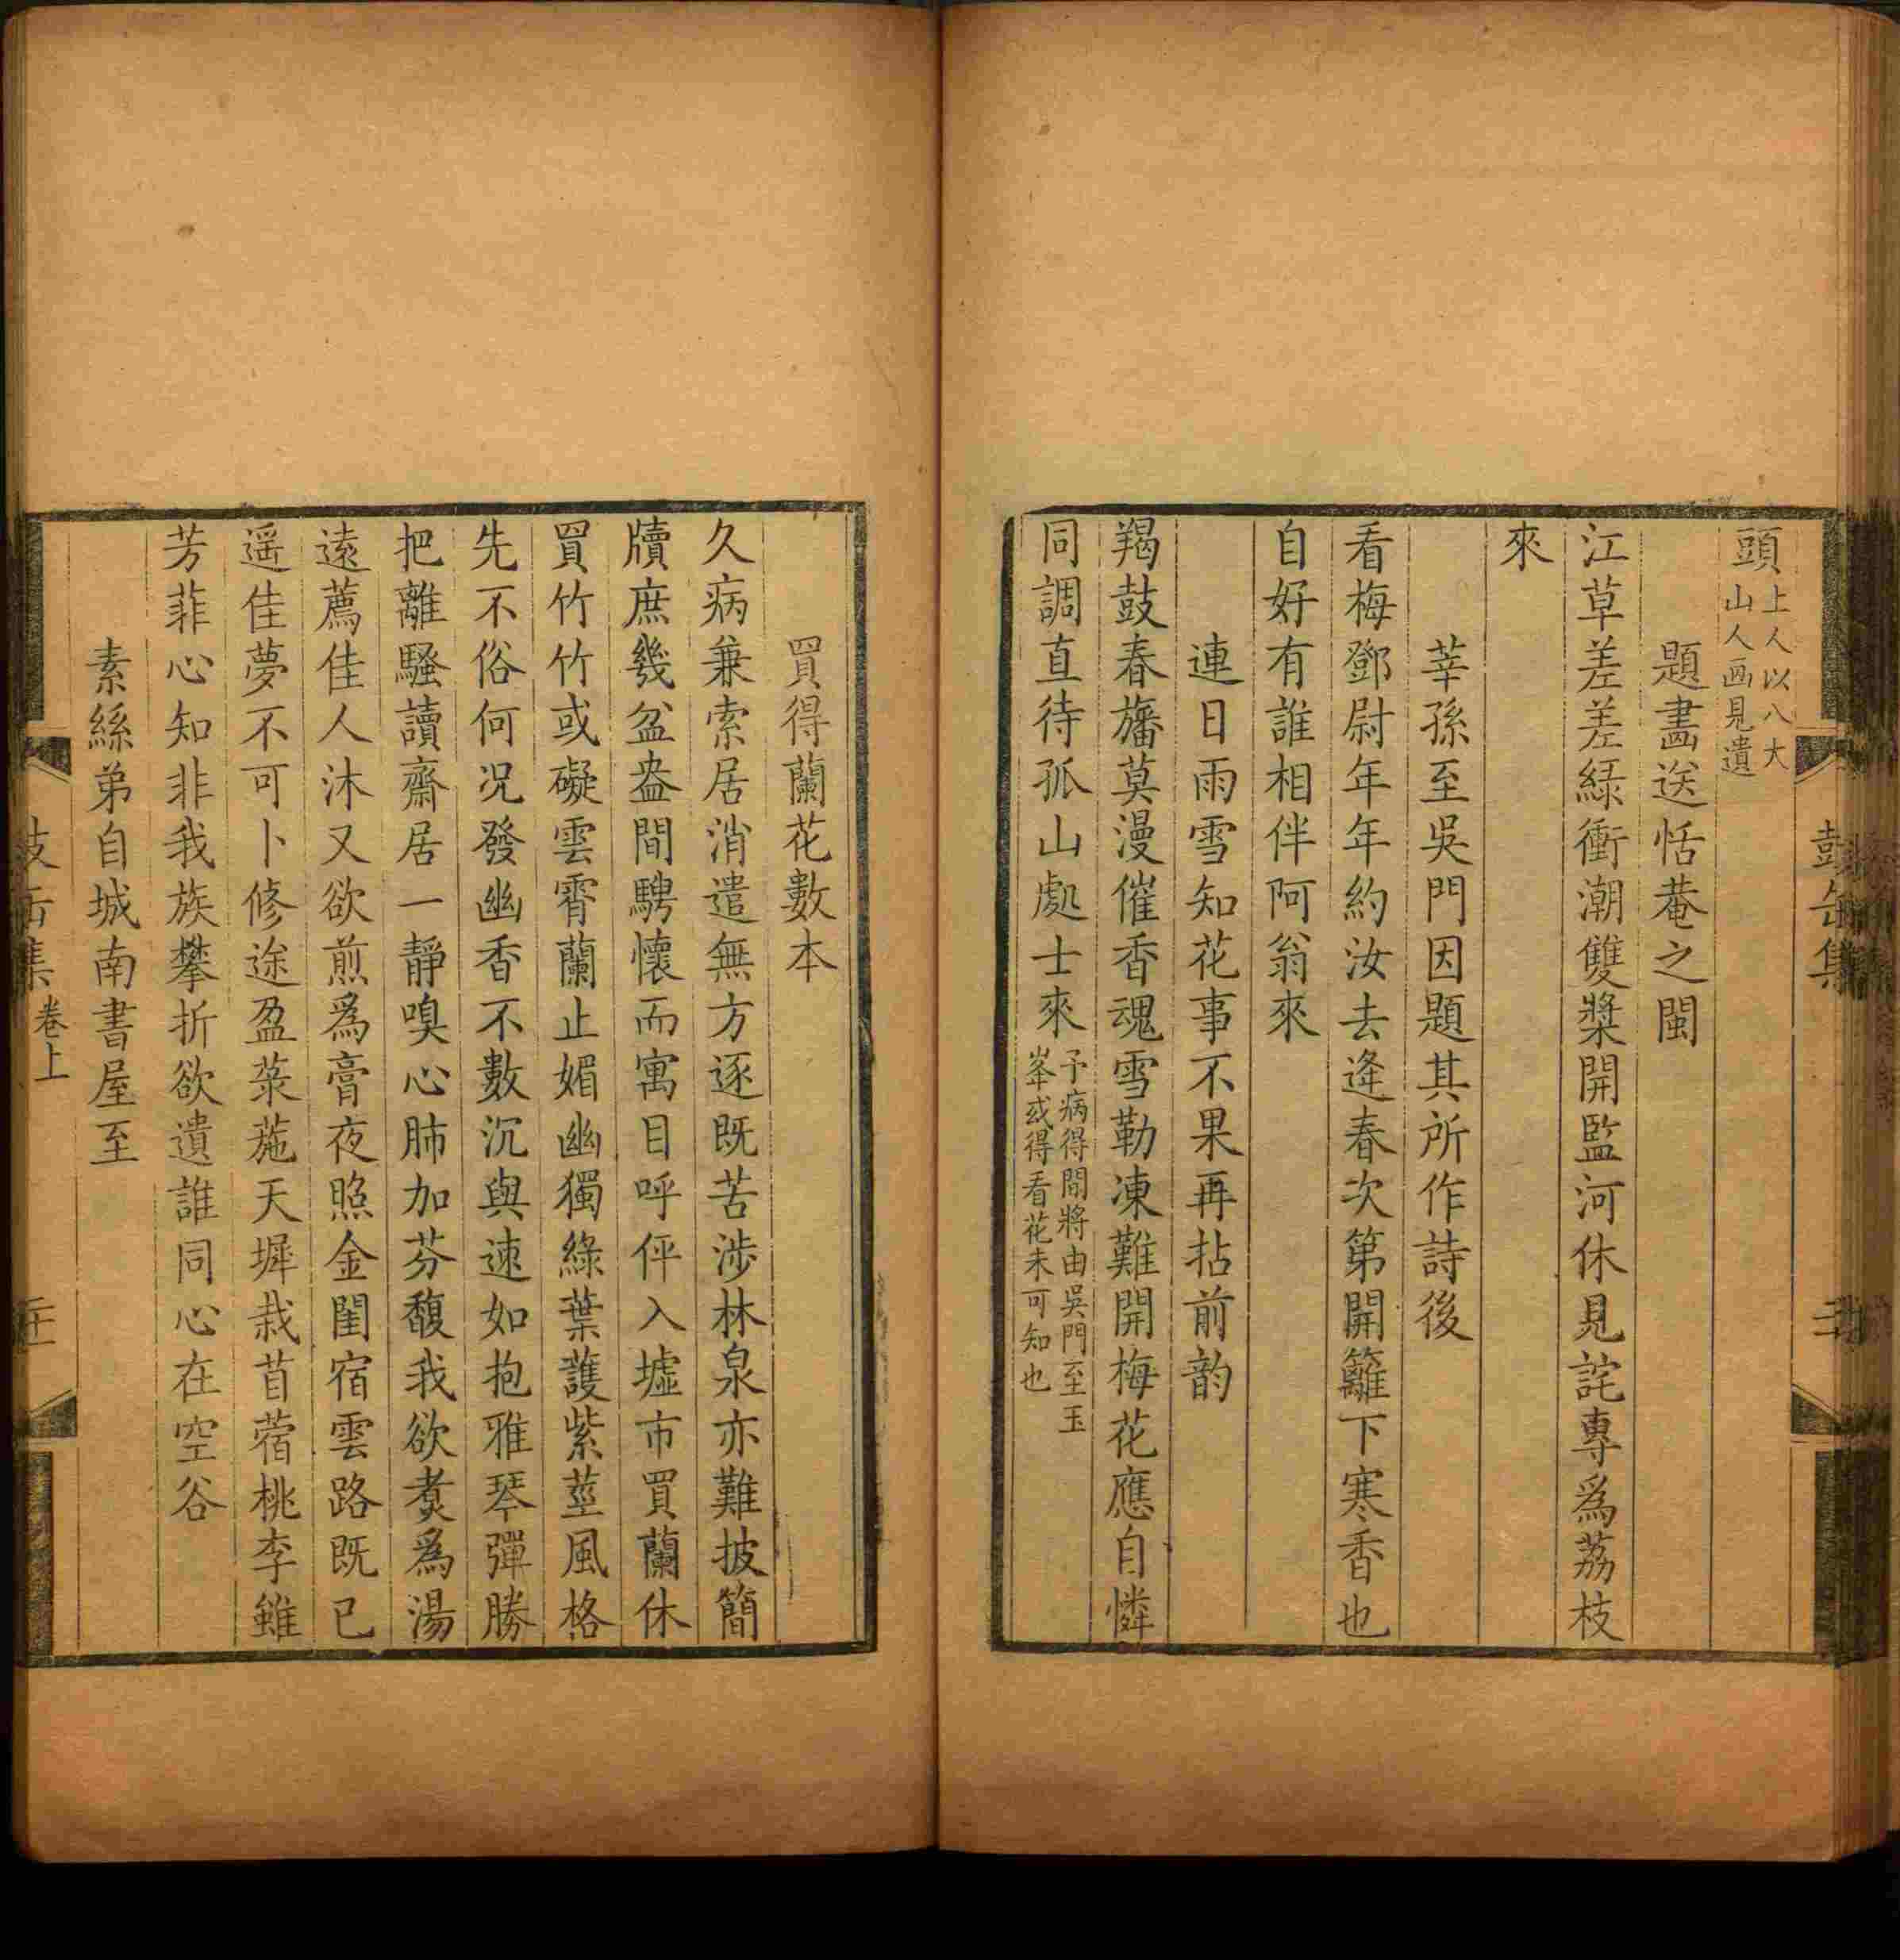 頭上人以八大
山人画見遺
題畵送恬菴之閩
江草差差綠衝潮雙槳開監河休見詫專爲荔枝
來
莘孫至吳門因題其所作詩後
看梅鄧尉年年約汝去逢春次第開籬下寒香也
自好有誰相伴阿翁來
連日雨雪知花事不果再拈前韵
羯鼓春旛莫漫催香魂雪勒凍難開梅花應自憐
同調直待孤山處士來予病得間將由吳門至玉
峯或得看花未可知也
買得蘭花數本
久病兼索居消遣無方逐既苦涉林泉亦難披簡
牘庶幾盆盎間騁懷而寓目呼伻入墟市買蘭休
買竹竹或礙雲霄蘭止媚幽獨綠葉護紫莖風格
先不俗何况發幽香不數沉與速如抱雅琴彈勝
把離騷讀齋居一靜嗅心肺加芬馥我欲煑爲湯
遠薦佳人沐又欲煎爲膏夜照金閨宿雲路既已
遥佳夢不可卜修途盈菉葹天墀栽苜蓿桃李雖
芳菲心知非我族攀折欲遺誰同心在空谷
素絲弟自城南書屋至
卷上